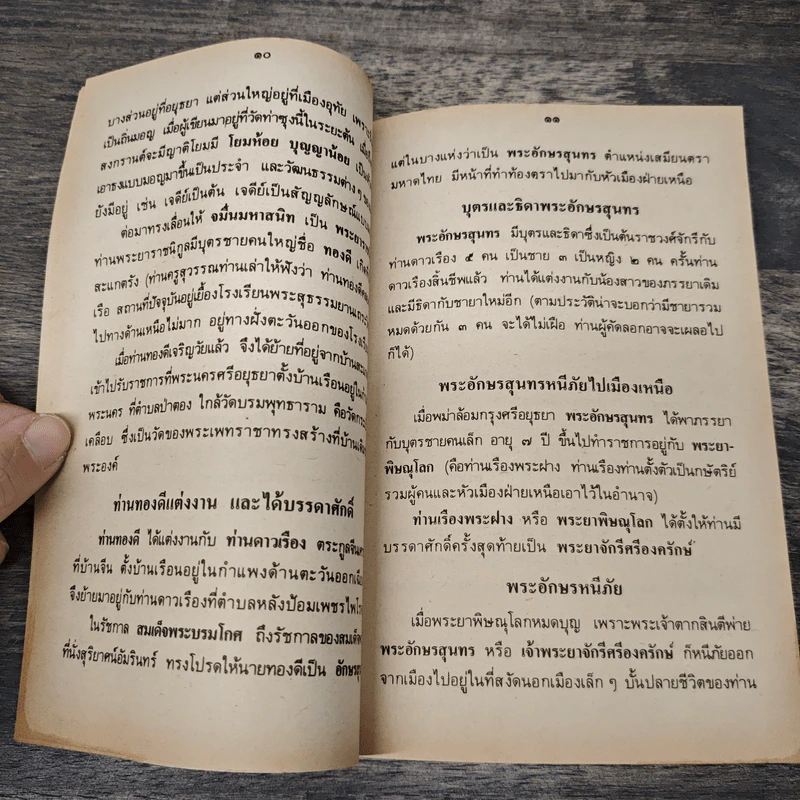 ๑๐
บางส่วนอยู่ที่อยุธยา แต่ส่วนใหญ่อยู่ที่เมืองอุทัย
เป็นถิ่นมอญ เมื่อผู้เขียนมาอยู่ที่วัดท่าซุงนี้ในระยะต้น
สงกรานต์จะมีญาติโยมมี โยมห้อย บุญญาน้อย
เอาธงแบบมอญมาขึ้นเป็นประจำ และวัฒนธรรมต่าง ๆ
ยังมีอยู่ เช่น เจดีย์เป็นต้น เจดีย์เป็นสัญญลักษณ์
ต่อมาทรงเลื่อนให้ จมื่นมหาสนิท เป็น
ท่านพระยาราชนิกูลมีบุตรชายคนใหญ่ชื่อ ทองดี
สะแกตรัง (ท่านครูสุวรรณท่านเล่าให้ฟังว่า ท่านทองดี
เรือ สถานที่ปัจจุบันอยู่เยื้องโรงเรียนพระสุธรรมยาน
ไปทางด้านเหนือไม่มาก อยู่ทางฝั่งตะวันออกของ
เมื่อท่านทองดีเจริญวัยแล้ว จึงได้ย้ายที่อยู่จากบ้าน
เข้าไปรับราชการที่พระนครศรีอยุธยาตั้งบ้านเรือนอยู่
พระนคร ที่ตำบลป่าตอง ใกล้วัดบรมพุทธาราม คือวัด
เคลือบ ซึ่งเป็นวัดของพระเพทราชาทรงสร้างที่บ้านเดิม
พระองค์
ท่านทองดีแต่งงาน และได้บรรดาศักดิ์
ท่านทองดี ได้แต่งงานกับ ท่านดาวเรือง ตระกูลจีน
ที่บ้านจีน ตั้งบ้านเรือนอยู่ในกำแพงด้านตะวันออก
จึงย้ายมาอยู่กับท่านดาวเรืองที่ตำบลหลังป้อมเพชร
ในรัชกาล สมเด็จพระบรมโกศ ถึงรัชกาลของสมเด็จ
ที่นั่งสุริยาศน์อัมรินทร์ ทรงโปรดให้นายทองดีเป็น
๑๑
แต่ในบางแห่งว่าเป็น พระอักษรสุนทร ตำแหน่งเสมียนตรา
มหาดไทย มีหน้าที่ทำท้องตราไปมากับหัวเมืองฝ่ายเหนือ
บุตรและธิดาพระอักษรสุนทร
พระอักษรสุนทร มีบุตรและธิดาซึ่งเป็นต้นราชวงศ์จักรีกับ
ท่านดาวเรือง ๕ คน เป็นชาย ๓ เป็นหญิง ๒ คน ครั้นท่าน
ดาวเรืองสิ้นชีพแล้ว ท่านได้แต่งงานกับน้องสาวของภรรยาเดิม
และมีธิดากับชายาใหม่อีก (ตามประวัติน่าจะบอกว่ามีชายารวม
หมดด้วยกัน ๓ คน จะได้ไม่เฝือ ท่านผู้คัดลอกอาจจะเผลอไป
ก็ได้)
พระอักษรสุนทรหนีภัยไปเมืองเหนือ
เมื่อพม่าล้อมกรุงศรีอยุธยา พระอักษรสุนทร ได้พาภรรยา
กับบุตรชายคนเล็ก อายุ ๗ ปี ขึ้นไปทำราชการอยู่กับ พระยา-
พิษณุโลก (คือท่านเรืองพระฝาง ท่านเรืองท่านตั้งตัวเป็นกษัตริย์
รวมผู้คนและหัวเมืองฝ่ายเหนือเอาไว้ในอำนาจ)
ท่านเรืองพระฝาง หรือ พระยาพิษณุโลก ได้ตั้งให้ท่านมี
บรรดาศักดิ์ครั้งสุดท้ายเป็น พระยาจักรีศรีองครักษ์
พระอักษรหนีภัย
เมื่อพระยาพิษณุโลกหมดบุญ เพราะพระเจ้าตากสินตีพ่าย
พระอักษรสุนทร หรือ เจ้าพระยาจักรีศรีองครักษ์ ก็หนีภัยออก
จากเมืองไปอยู่ในที่สงัดนอกเมืองเล็ก ๆ บั้นปลายชีวิตของท่าน